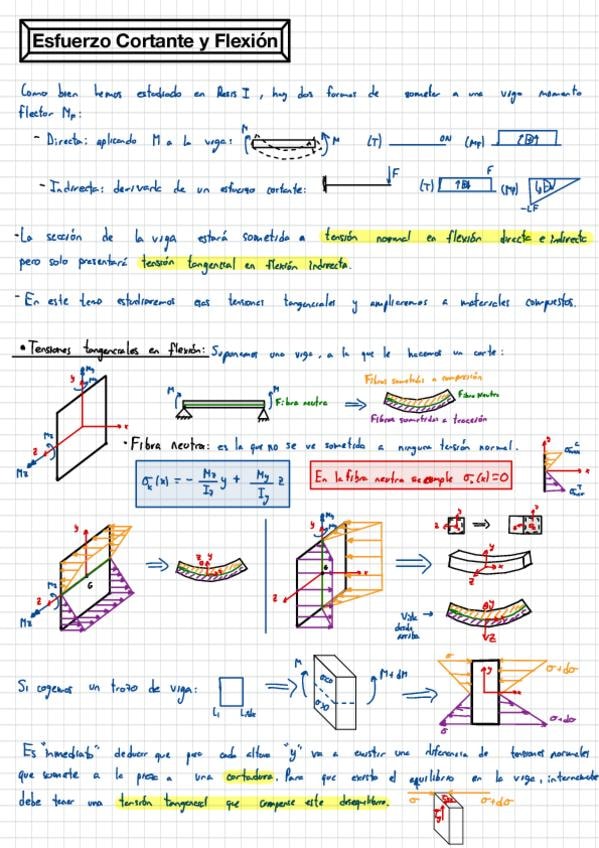 Esfuerzo Cortante y Flexión
Como bien hemos estudiado en Resis I, hay dos formas de someter a una viga momento
flector Mf:
- Directa: aplicando M a la viga: M M (T) ON (Mf)
- Indirecta: derivada de un esfuerzo cortante: F (T) F (Mf) -LF
- La sección de la viga estará sometida a tensión normal en flexión directa e indirecta
pero solo presentará tensión tangencial en flexión indirecta.
- En este tema estudiaremos esas tensiones tangenciales y ampliaremos a materiales compuestos.
• Tensiones tangenciales en flexión: Suponemos una viga, a la que le hacemos un corte:
Fibras sometidas a compresión
M M Fibra neutra Fibra neutra
Fibras sometidas a tracción
• Fibra neutra: es la que no se ve sometida a ninguna tensión normal.
σx(x) = - Mz/Iz y + My/Iy z
En la fibra neutra se cumple σx(x)=0
My y x z Mz
y G z Mz
My y G z
Vista
desde
arriba
Si cogemos un trozo de viga: M M+dM σ σ+dσ
σ σ+dσ
Es "inmediato" deducir que para cada altura "y" va a existir una diferencia de tensiones normales
que somete a la pieza a una cortadura. Para que exista el equilibrio en la viga, internamente
debe tener una tensión tangencial que compense este desequilibrio.
σ σ+dσ